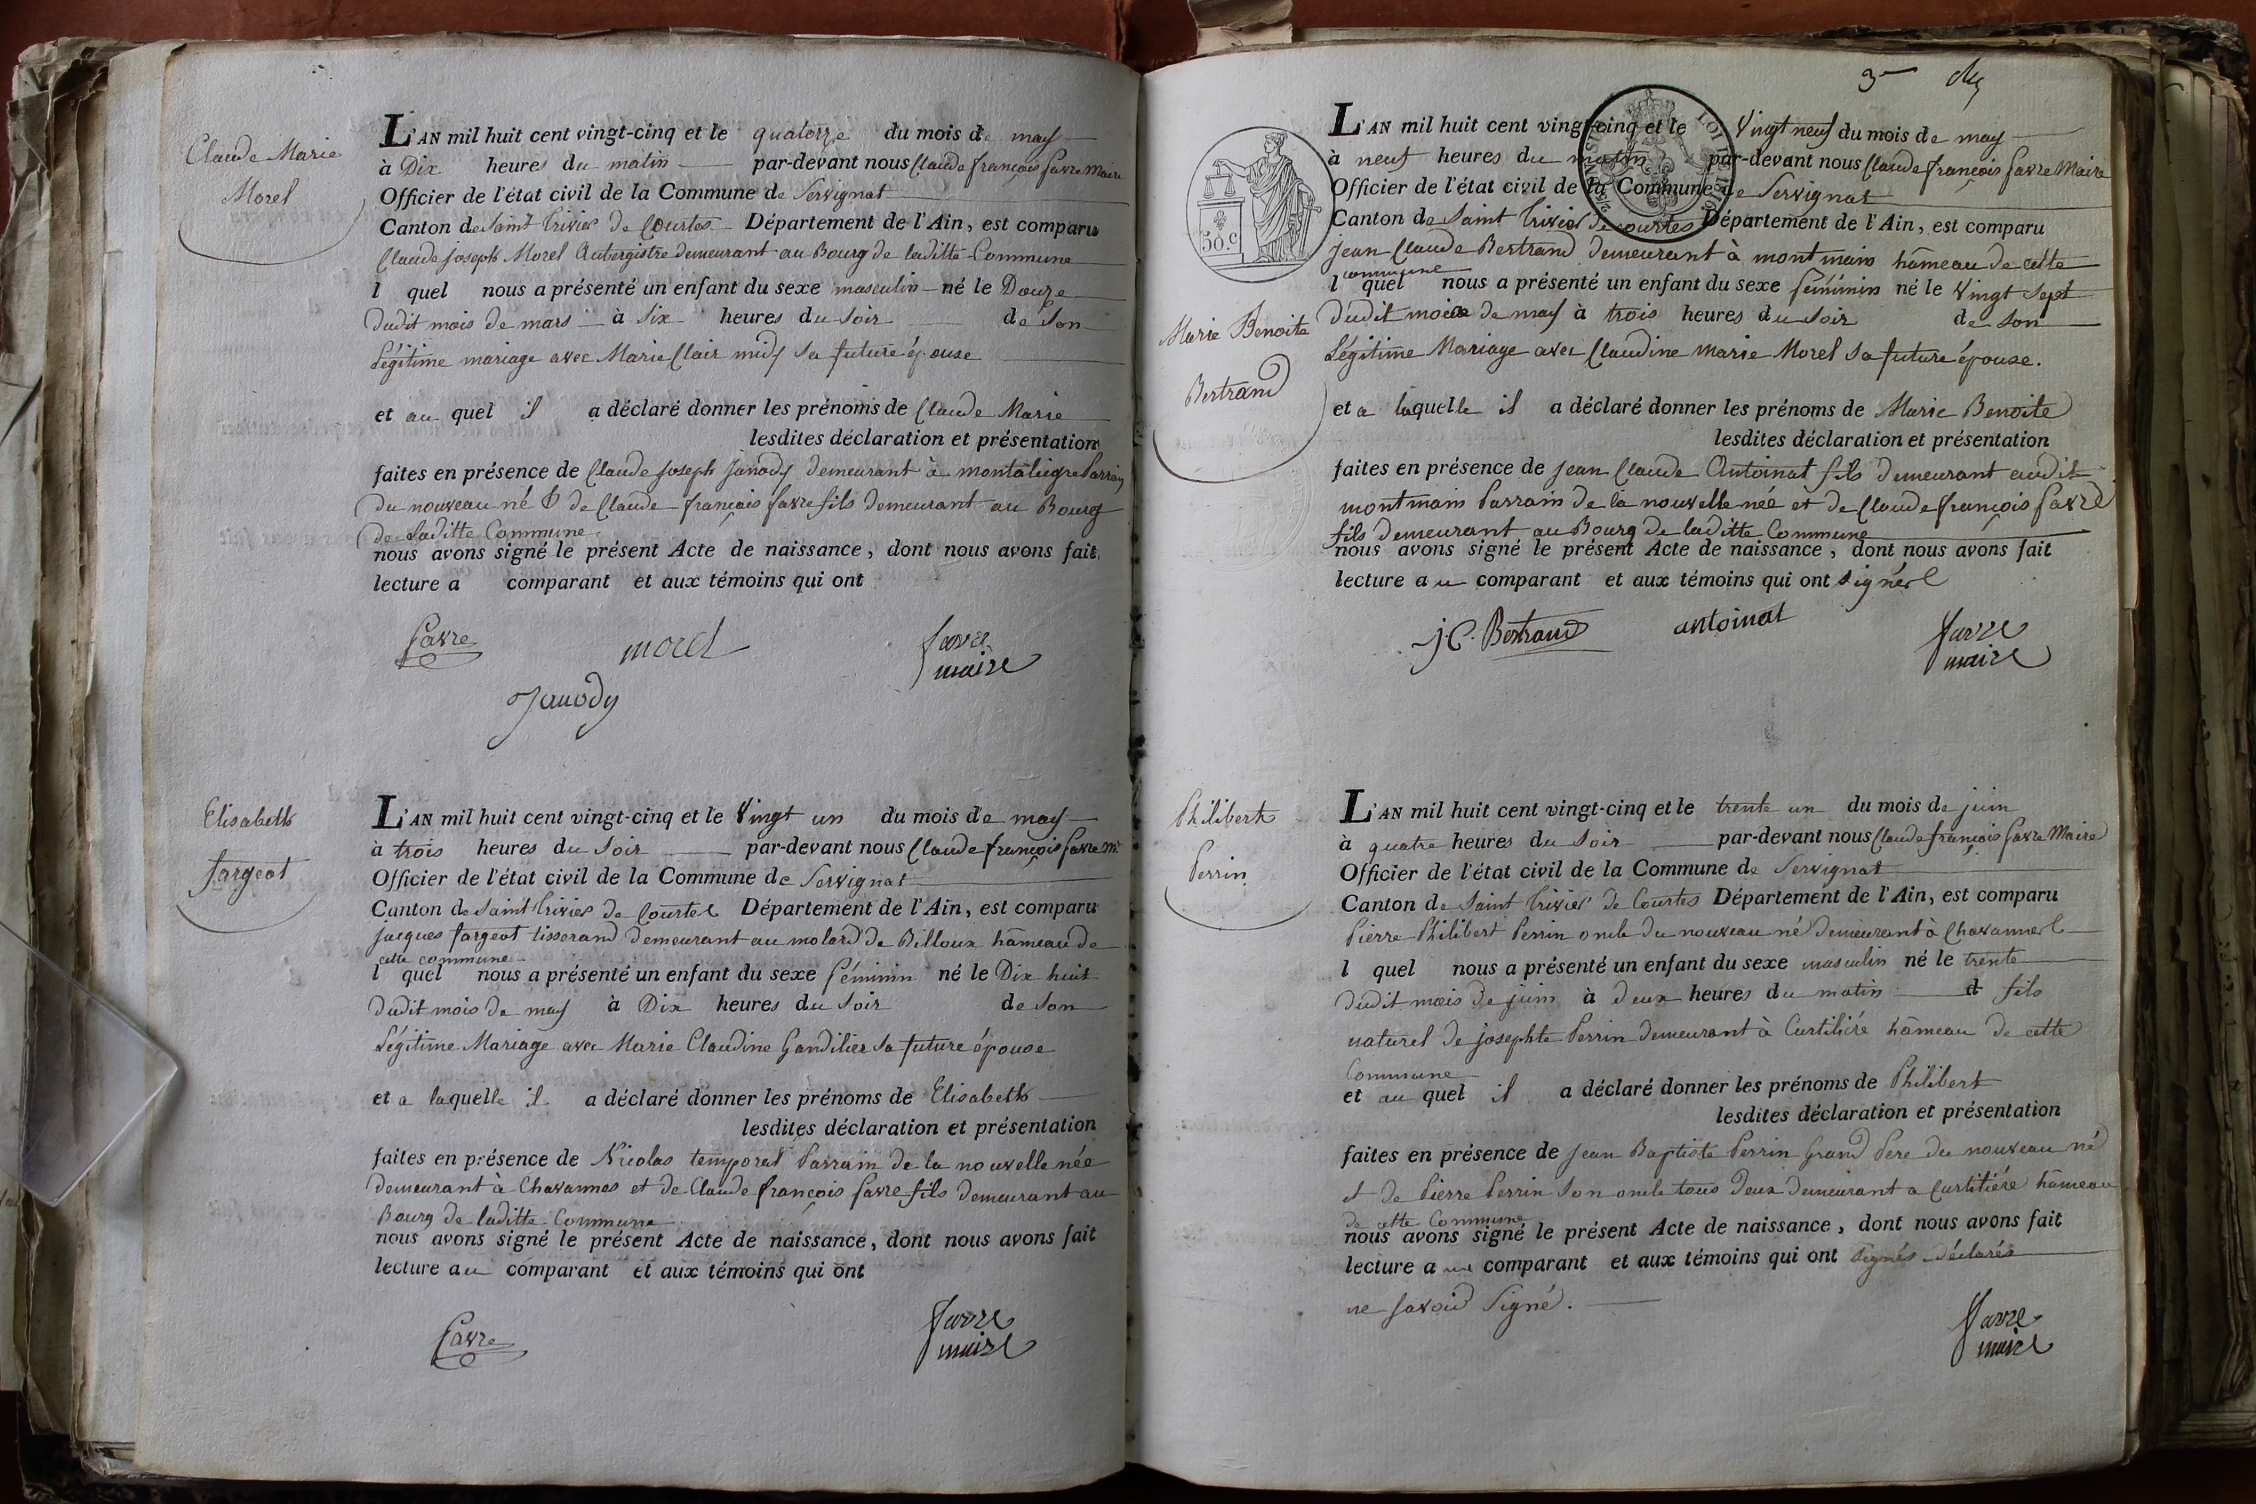 Claude Marie
Morel
L'AN mil huit cent vingt-cinq et le quatorze du mois de may
à Dix heures du matin par-devant nous Claude françois favre Maire
Officier de l'état civil de la Commune de Servignat
Canton de Saint Trivier de Courtes Département de l'Ain, est comparu
Claude joseph Morel Aubergiste demeurant au Bourg de laditte Commune
l quel nous a présenté un enfant du sexe masculin né le Douze
dudit mois de mars à Six heures du Soir de Son
Légitime mariage avec Marie Clair midy sa future épouse
et au quel il a déclaré donner les prénoms de Claude Marie
lesdites déclaration et présentation
faites en présence de Claude joseph Janody demeurant à Parrain
du nouveau né & de Claude françois favre fils demeurant au Bourg
de Laditte Commune
nous avons signé le présent Acte de naissance, dont nous avons fait
lecture a comparant et aux témoins qui ont
favre morel favre
maire
Janody
Elisabeth
fargeot
L'AN mil huit cent vingt-cinq et le Vingt un du mois de may
à trois heures du Soir par-devant nous Claude françois favre Mre
Officier de l'état civil de la Commune de Servignat
Canton de Saint Trivier de Courtes Département de l'Ain, est comparu
jacques fargeot tisserand demeurant au molard de Billoux hâmeau de
cette commune
l quel nous a présenté un enfant du sexe féminin né le Dix huit
dudit mois de may à Dix heures du Soir de Son
Légitime Mariage avec Marie Claudine Gandilier sa future épouse
et a laquelle il a déclaré donner les prénoms de Elisabeth
lesdites déclaration et présentation
faites en présence de Nicolas temporal Parrain de la nouvelle née
demeurant à Chavannes et de Claude françois favre fils demeurant au
Bourg de laditte Commune
nous avons signé le présent Acte de naissance, dont nous avons fait
lecture au comparant et aux témoins qui ont
favre favre
maire
3
50.C
LOI DE 1816
Marie Benoite
Bertrand
L'AN mil huit cent vingt-cinq et le Vingt neuf du mois de may
à neuf heures du matin par-devant nous Claude françois favre Maire
Officier de l'état civil de la Commune de Servignat
Canton de Saint Trivier de courtes Département de l'Ain, est comparu
jean Claude Bertrand demeurant à montmain hâmeau de cette
commune
l quel nous a présenté un enfant du sexe féminin né le Vingt Sept
dudit mois de may à trois heures du Soir de Son
Légitime Mariage avec Claudine Marie Morel sa future épouse.
et a laquelle il a déclaré donner les prénoms de Marie Benoite
lesdites déclaration et présentation
faites en présence de jean Claude Antoinat fils demeurant audit
montmain Parrain de la nouvelle née et de Claude françois favre
fils demeurant au Bourg de laditte Commune
nous avons signé le présent Acte de naissance, dont nous avons fait
lecture au comparant et aux témoins qui ont signés
J.C. Bertrand antoinat favre
maire
Philibert
Perrin
L'AN mil huit cent vingt-cinq et le trente un du mois de juin
à quatre heures du Soir par-devant nous Claude françois favre Maire
Officier de l'état civil de la Commune de Servignat
Canton de Saint Trivier de Courtes Département de l'Ain, est comparu
Pierre Philibert Perrin oncle du nouveau né demeurant à Chavannes
l quel nous a présenté un enfant du sexe masculin né le trente
dudit mois de juin à deux heures du matin d fils
naturel de josephte Perrin demeurant à Curtilière hâmeau de cette
Commune
et au quel il a déclaré donner les prénoms de Philibert
lesdites déclaration et présentation
faites en présence de jean Baptiste Perrin Grand Pere du nouveau né
et de Pierre Perrin Son oncle tous Deux demeurant a Curtilière hâmeau
de cette Commune
nous avons signé le présent Acte de naissance, dont nous avons fait
lecture au comparant et aux témoins qui ont signés déclarés
ne savoir Signé.
favre
maire